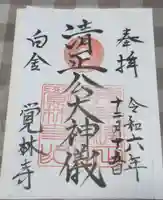 奉拝
令和六年
十二月十五日
清正公大神儀
白金
覚林寺